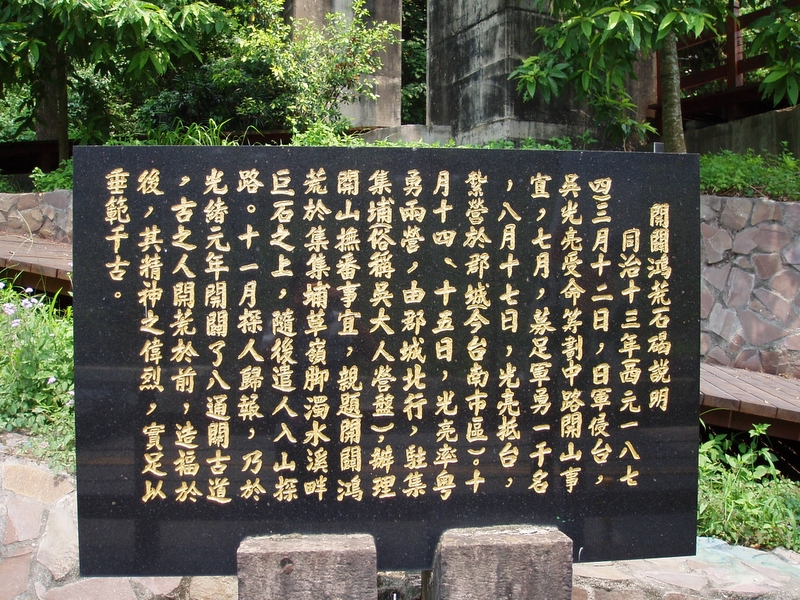 開闢鴻荒石碣說明
同治十三年(西元一八七
四)三月十二日,日軍侵台,
吳光亮受命籌劃中路開山事
宜,七月,募足軍勇一千名
,八月十七日,光亮抵台,
紮營於郡城(今台南市區)。十
月十四、十五日,光亮率粵
勇兩營,由郡城北行,駐集
集埔(俗稱吳大人營盤),辦理
開山撫番事宜,親題開闢鴻
荒於集集埔草嶺腳濁水溪畔
巨石之上,隨後遣人入山探
路。十一月探人歸報,乃於
光緒元年開闢了八通關古道
,古之人開荒於前,造福於
後,其精神之偉烈,實足以
垂範千古。